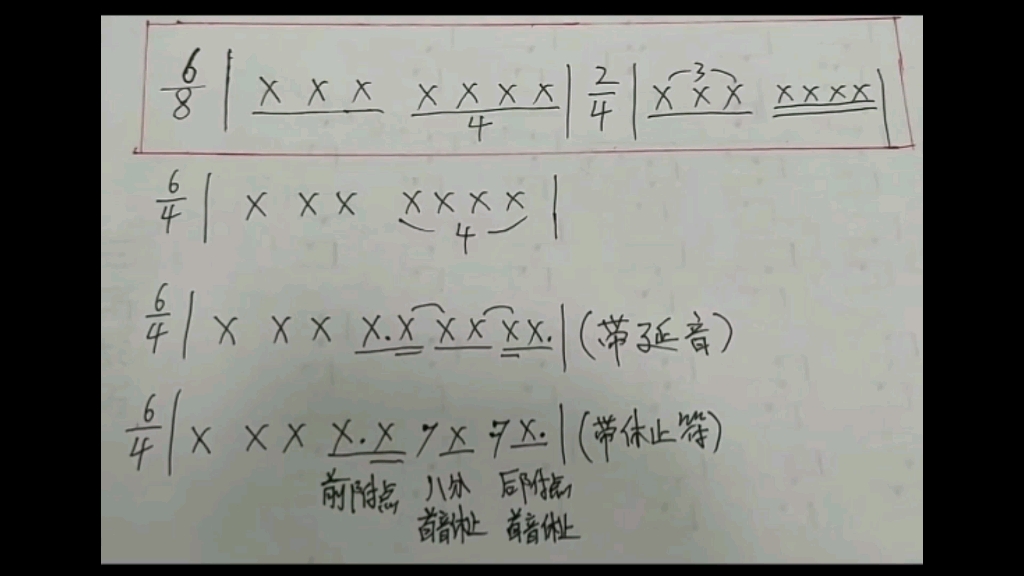 6/8 | X X X X X X X | 2/4 | X X X X X X X |
4 3
6/4 | X X X X X X X |
4
6/4 | X X X X.X XX XX. | (带延音)
6/4 | X X X X.X 7X 7X. | (带休止符)
前附点 八分 后附点
首音休止 首音休止